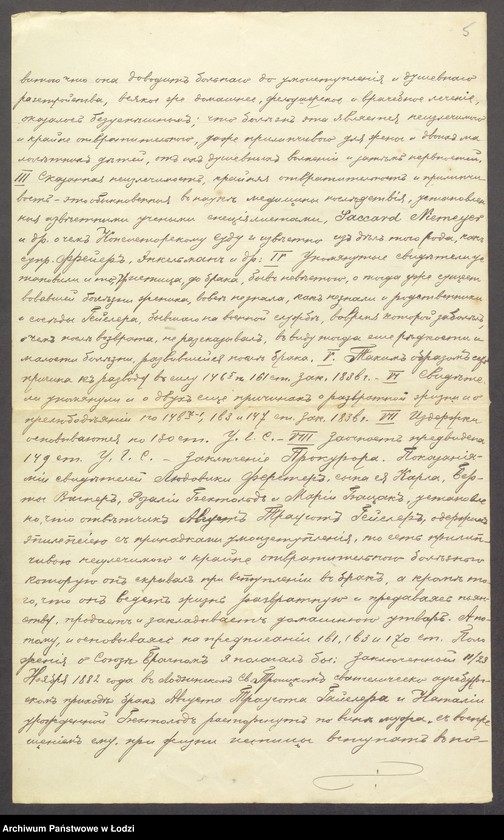 5
что она доводитъ больнаго до умоизступленія и душевнаго
разстройства, всякое же домашнее, фельдшерское и врачебное леченіе,
оказалось безуспешнымъ; что болезнь эта является неизлечимою
и крайне отвратительною, даже прилипчивою для жены и двоихъ ма
лолетнихъ детей, отъ ихъ душевныхъ волненій и
III Сказанная неизлечимость, крайняя отвратительность и прилипчи
вость - это обыкновенныя въ науке медицины последствія, установлен
ныя известными учеными спеціалистами, Saccard Nemeyer
и др. о чемъ Консисторскому суду и известно изъ делъ того рода, какъ
супр. Фрейеръ, Винкельманъ и др: IV Упомянутые свидетели ус
тановили и то, истица, до брака, бывъ невестою, о тогда уже сущест
вовавшей болезни жениха, вовсе не знала, какъ не знали и родственники
и соседы Гейслера, бывшаго на военной службе, во время которой заболелъ,
о чемъ после возврата, не разсказывалъ, въ виду тогда еще редкости и
малости болезни, развившейся после брака. V. Такимъ образомъ есть
причина къ разводу въ силу 146 и 161 ст. зак. 1836 г. - VI Свидете
ли упомянули и о двухъ еще причинахъ о развратной жизни и о
прелюбодеяніи по 146, 163 и 147 ст. зак. 1836 г. VII Издержки
основываются на 130 ст. У. Г. С. - VIII заочность предвидена
149 ст. У. Г. С. - Заключеніе Прокурора. Показанія-
ми свидетелей Людовики Ферстеръ, сына ея Карла, Бер-
ты Вагнеръ, Розаліи Бектольдъ и Маріи установле
но, что ответчикъ Августъ Трауготъ Гейслеръ, одержимъ
эпилепсіею съ припадками умоизступленія, то есть прилип
чивою неизлечимою и крайне отвратительною болезнью
которую онъ скрывалъ при вступленіи въ бракъ, а кроме то
го, что онъ ведетъ жизнь развратную и предаваясь пьян
ству, продаетъ и закладываетъ домашнюю утварь. А по
тому, и основываясь на предписаніи 161, 163 и 170 ст. Поло
женія о Союзе Брачномъ я полагалъ бы: заключенный 11/23
Ноября 1882 года въ Лодзинскомъ Св. Троицкомъ евангелическо аугсбург
скомъ приходе бракъ Августа Траугота Гейслера и Наталіи
урожденной Бектольдъ расторгнуть по вине мужа, съ воспре
щеніемъ ему, при жизни истицы вступать въ но-
Archiwum Państwowe w Łodzi